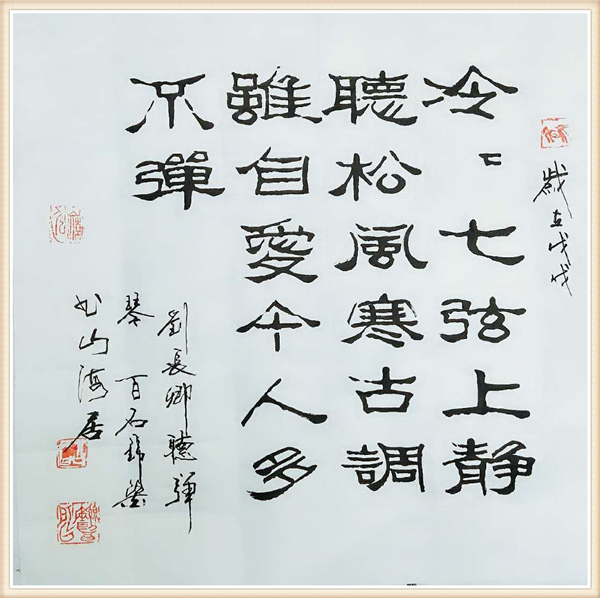 歲在戊戌
冷〻七弦上静
聽松風寒古調
雖自愛今人多
不彈
劉長卿聽彈
琴 百石
山海居